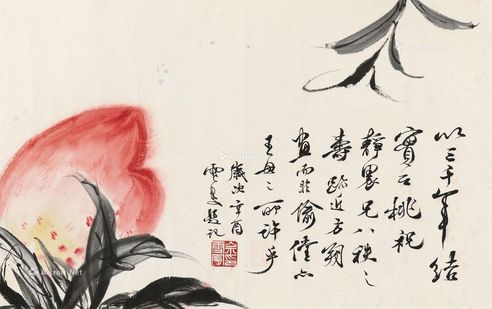 以三千年結
實之桃祝
靜農兄八秩之
壽跡近方朔
畫而非偷儻亦
王母之所許乎
歲次辛酉
題記